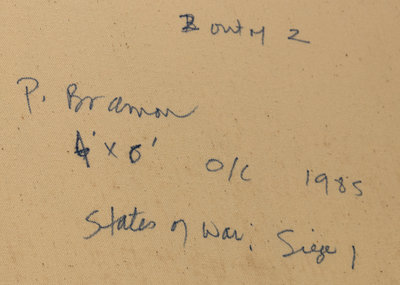 2 out of 2
P. Bramon
4' x 6' O/C 1985
States of War: Siege 1